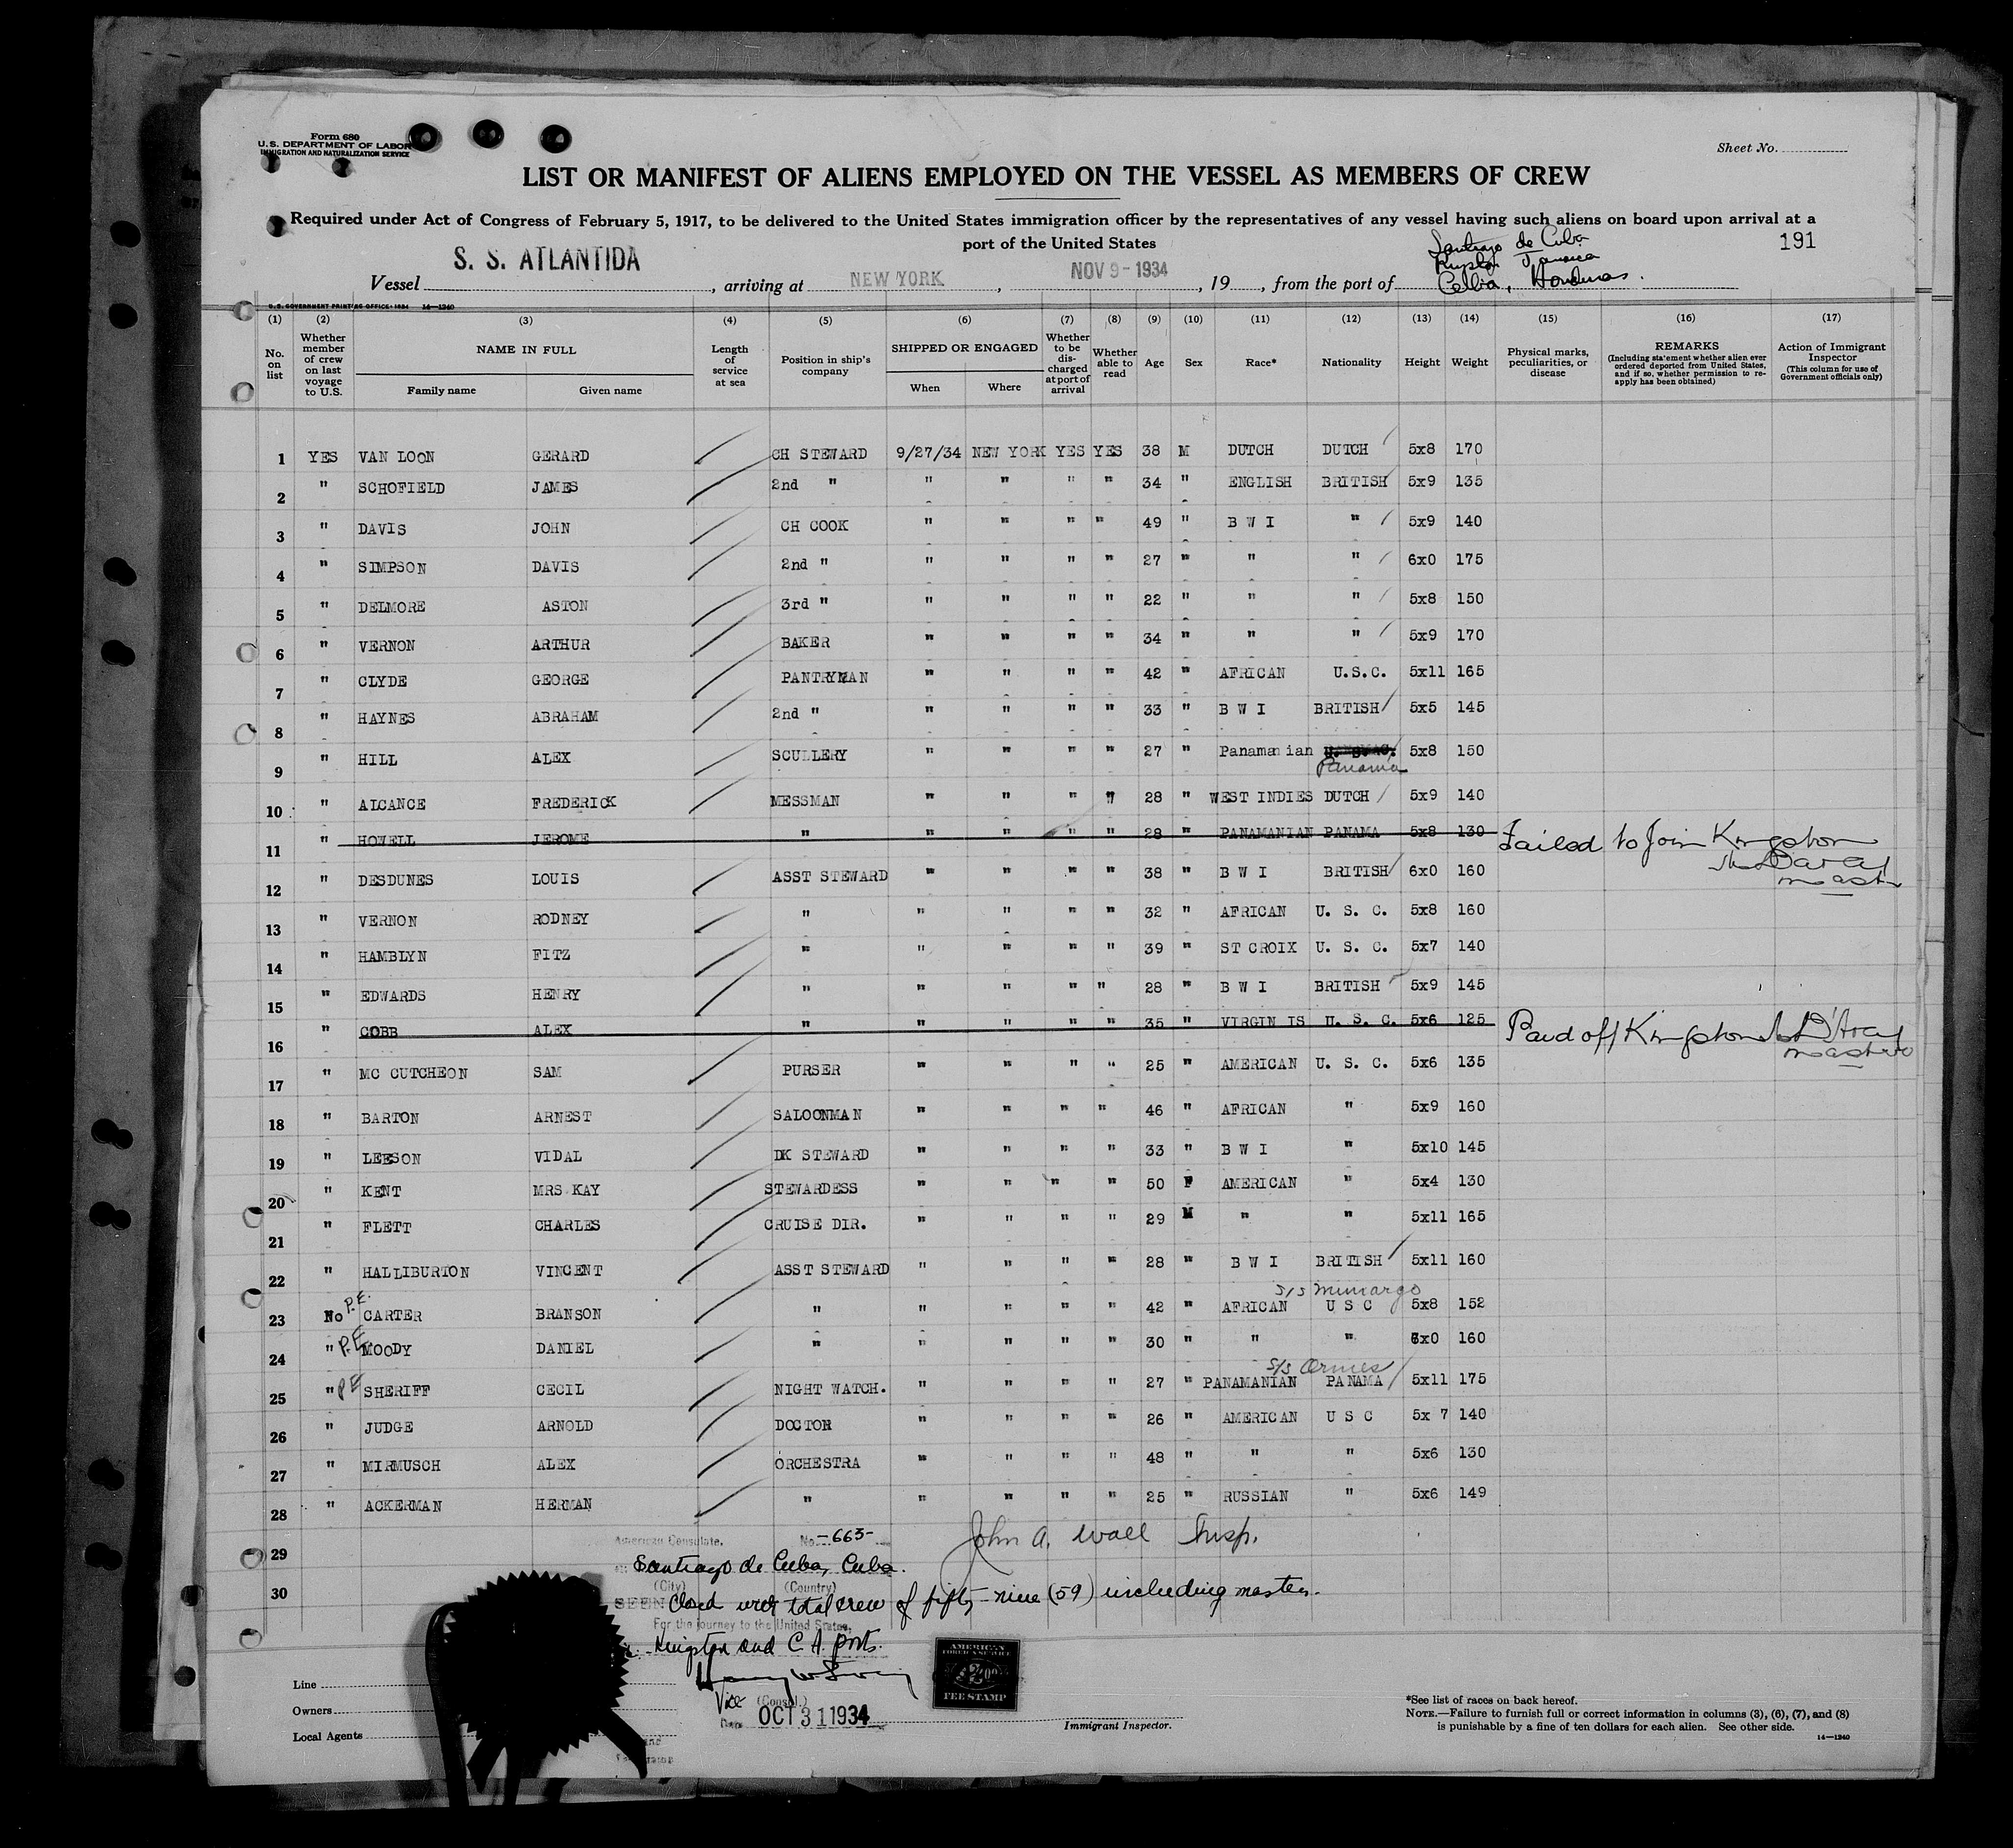 Form 680
U.S. DEPARTMENT OF LABOR
IMMIGRATION AND NATURALIZATION SERVICE
Sheet No.
LIST OR MANIFEST OF ALIENS EMPLOYED ON THE VESSEL AS MEMBERS OF CREW
Required under Act of Congress of February 5, 1917, to be delivered to the United States immigration officer by the representatives of any vessel having such aliens on board upon arrival at a
port of the United States
191
Santiago de Cuba
Jamaica
Vessel S. S. ATLANTIDA, arriving at NEW YORK, NOV 9-1934, 19, from the port of Ceiba, Honduras.
U.S. GOVERNMENT PRINTING OFFICE: 1934 14-1240
(1) (2) (3) (4) (5) (6) (7) (8) (9) (10) (11) (12) (13) (14) (15) (16) (17)
No. on list
Whether member of crew on last voyage to U.S.
NAME IN FULL
Family name Given name
Length of service at sea
Position in ship's company
SHIPPED OR ENGAGED
When Where
Whether to be discharged at port of arrival
Whether able to read
Age
Sex
Race*
Nationality
Height
Weight
Physical marks, peculiarities, or disease
REMARKS
(Including statement whether alien ever ordered deported from United States, and if so, whether permission to reapply has been obtained)
Action of Immigrant Inspector
(This column for use of Government officials only)
1 YES VAN LOON GERARD CH STEWARD 9/27/34 NEW YORK YES YES 38 M DUTCH DUTCH 5x8 170
2 " SCHOFIELD JAMES 2nd " " " " " 34 " ENGLISH BRITISH 5x9 135
3 " DAVIS JOHN CH COOK " " " " 49 " B W I " 5x9 140
4 " SIMPSON DAVIS 2nd " " " " " 27 " " " 6x0 175
5 " DELMORE ASTON 3rd " " " " " 22 " " " 5x8 150
6 " VERNON ARTHUR BAKER " " " " 34 " " " 5x9 170
7 " CLYDE GEORGE PANTRYMAN " " " " 42 " AFRICAN U.S.C. 5x11 165
8 " HAYNES ABRAHAM 2nd " " " " " 33 " B W I BRITISH 5x5 145
9 " HILL ALEX SCULLERY " " " " 27 " Panamanian Panama 5x8 150
10 " ALCANCE FREDERICK MESSMAN " " " " 28 " WEST INDIES DUTCH 5x9 140
11 " HOWELL JEROME " " " " " 28 " PANAMANIAN PANAMA 5x8 130 Failed to Join Kingston
12 " DESDUNES LOUIS ASST STEWARD " " " " 38 " B W I BRITISH 6x0 160
13 " VERNON RODNEY " " " " " 32 " AFRICAN U. S. C. 5x8 160
14 " HAMBLYN FITZ " " " " " 39 " ST CROIX U. S. C. 5x7 140
15 " EDWARDS HENRY " " " " " 28 " B W I BRITISH 5x9 145
16 " COBB ALEX " " " " " 35 " VIRGIN IS U. S. C. 5x6 125 Paid off Kingston
17 " MC CUTCHEON SAM PURSER " " " " 25 " AMERICAN U. S. C. 5x6 135
18 " BARTON ARNEST SALOONMAN " " " " 46 " AFRICAN " 5x9 160
19 " LEESON VIDAL DK STEWARD " " " " 33 " B W I " 5x10 145
20 " KENT MRS KAY STEWARDESS " " " " 50 F AMERICAN " 5x4 130
21 " FLETT CHARLES CRUISE DIR. " " " " 29 M " " 5x11 165
22 " HALLIBURTON VINCENT ASST STEWARD " " " " 28 " B W I BRITISH 5x11 160
23 No P.E. CARTER BRANSON " " " " " 42 " AFRICAN U S C 5x8 152
24 " P.E. MOODY DANIEL " " " " " 30 " " " 6x0 160
25 " P.E. SHERIFF CECIL NIGHT WATCH. " " " " 27 " PANAMANIAN PANAMA 5x11 175
26 " JUDGE ARNOLD DOCTOR " " " " 26 " AMERICAN U S C 5x 7 140
27 " MIRMUSCH ALEX ORCHESTRA " " " " 48 " " " 5x6 130
28 " ACKERMAN HERMAN " " " " " 25 " RUSSIAN " 5x6 149
29
30
American Consulate, No. -663-
John A. Wall Insp.
Santiago de Cuba, Cuba.
(City) (Country)
SEEN Closed with total crew of fifty-nine (59) including master.
For the journey to the United States,
Kingston and C. A. ports.
Vice (Consul.)
Date OCT 31 1934
AMERICAN
FOREIGN SERVICE
$2.00
FEE STAMP
Line
Owners
Local Agents
Immigrant Inspector.
*See list of races on back hereof.
NOTE.—Failure to furnish full or correct information in columns (3), (6), (7), and (8)
is punishable by a fine of ten dollars for each alien. See other side.
14-1240